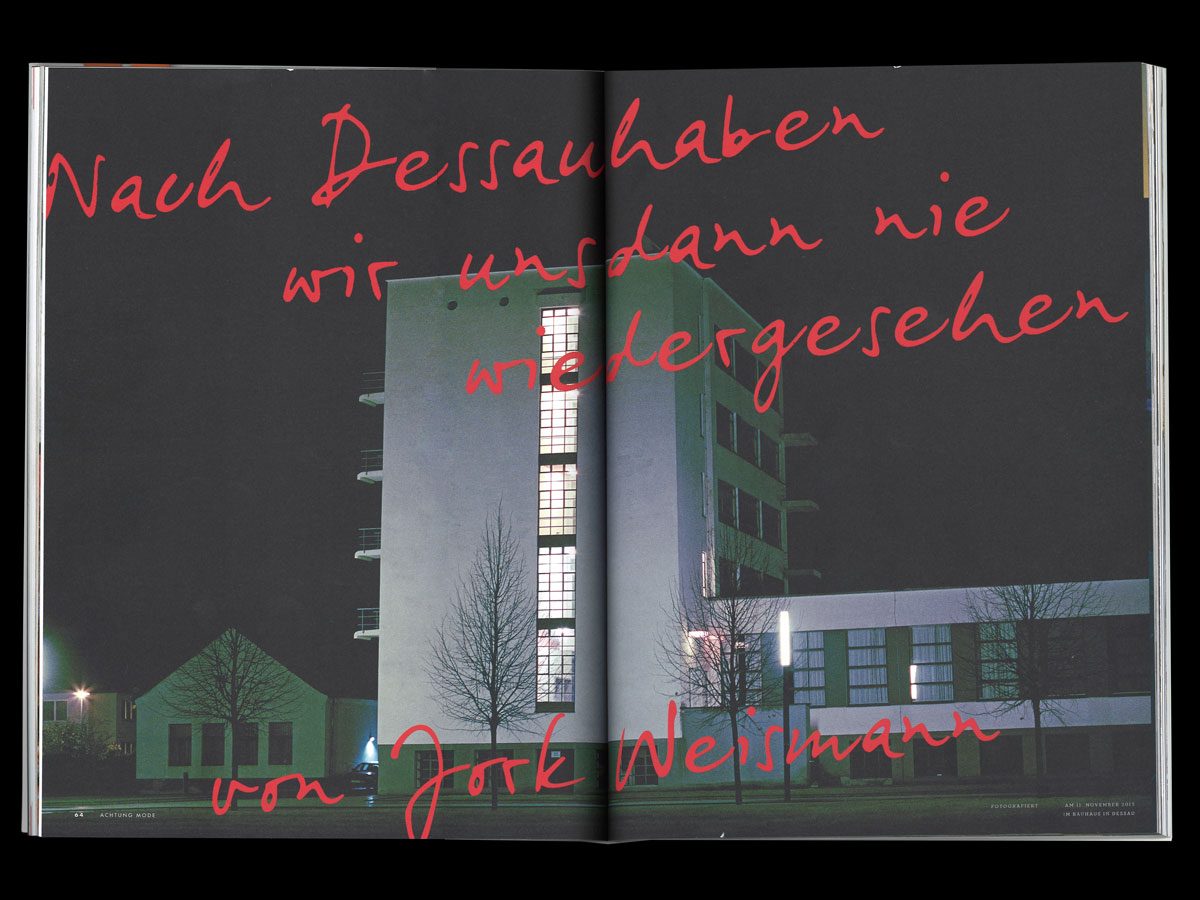 Nach Dessau haben
wir uns dann nie
wiedergesehen
von Jork Weismann
64 ACHTUNG MODE
FOTOGRAFIERT AM 12. NOVEMBER 2015
IM BAUHAUS IN DESSAU